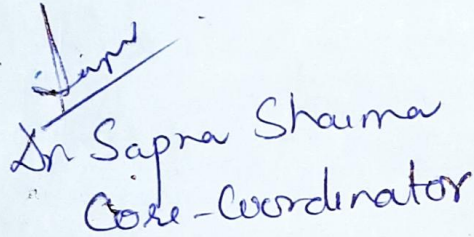 Dr. Sapna Sharma
Core-Coordinator